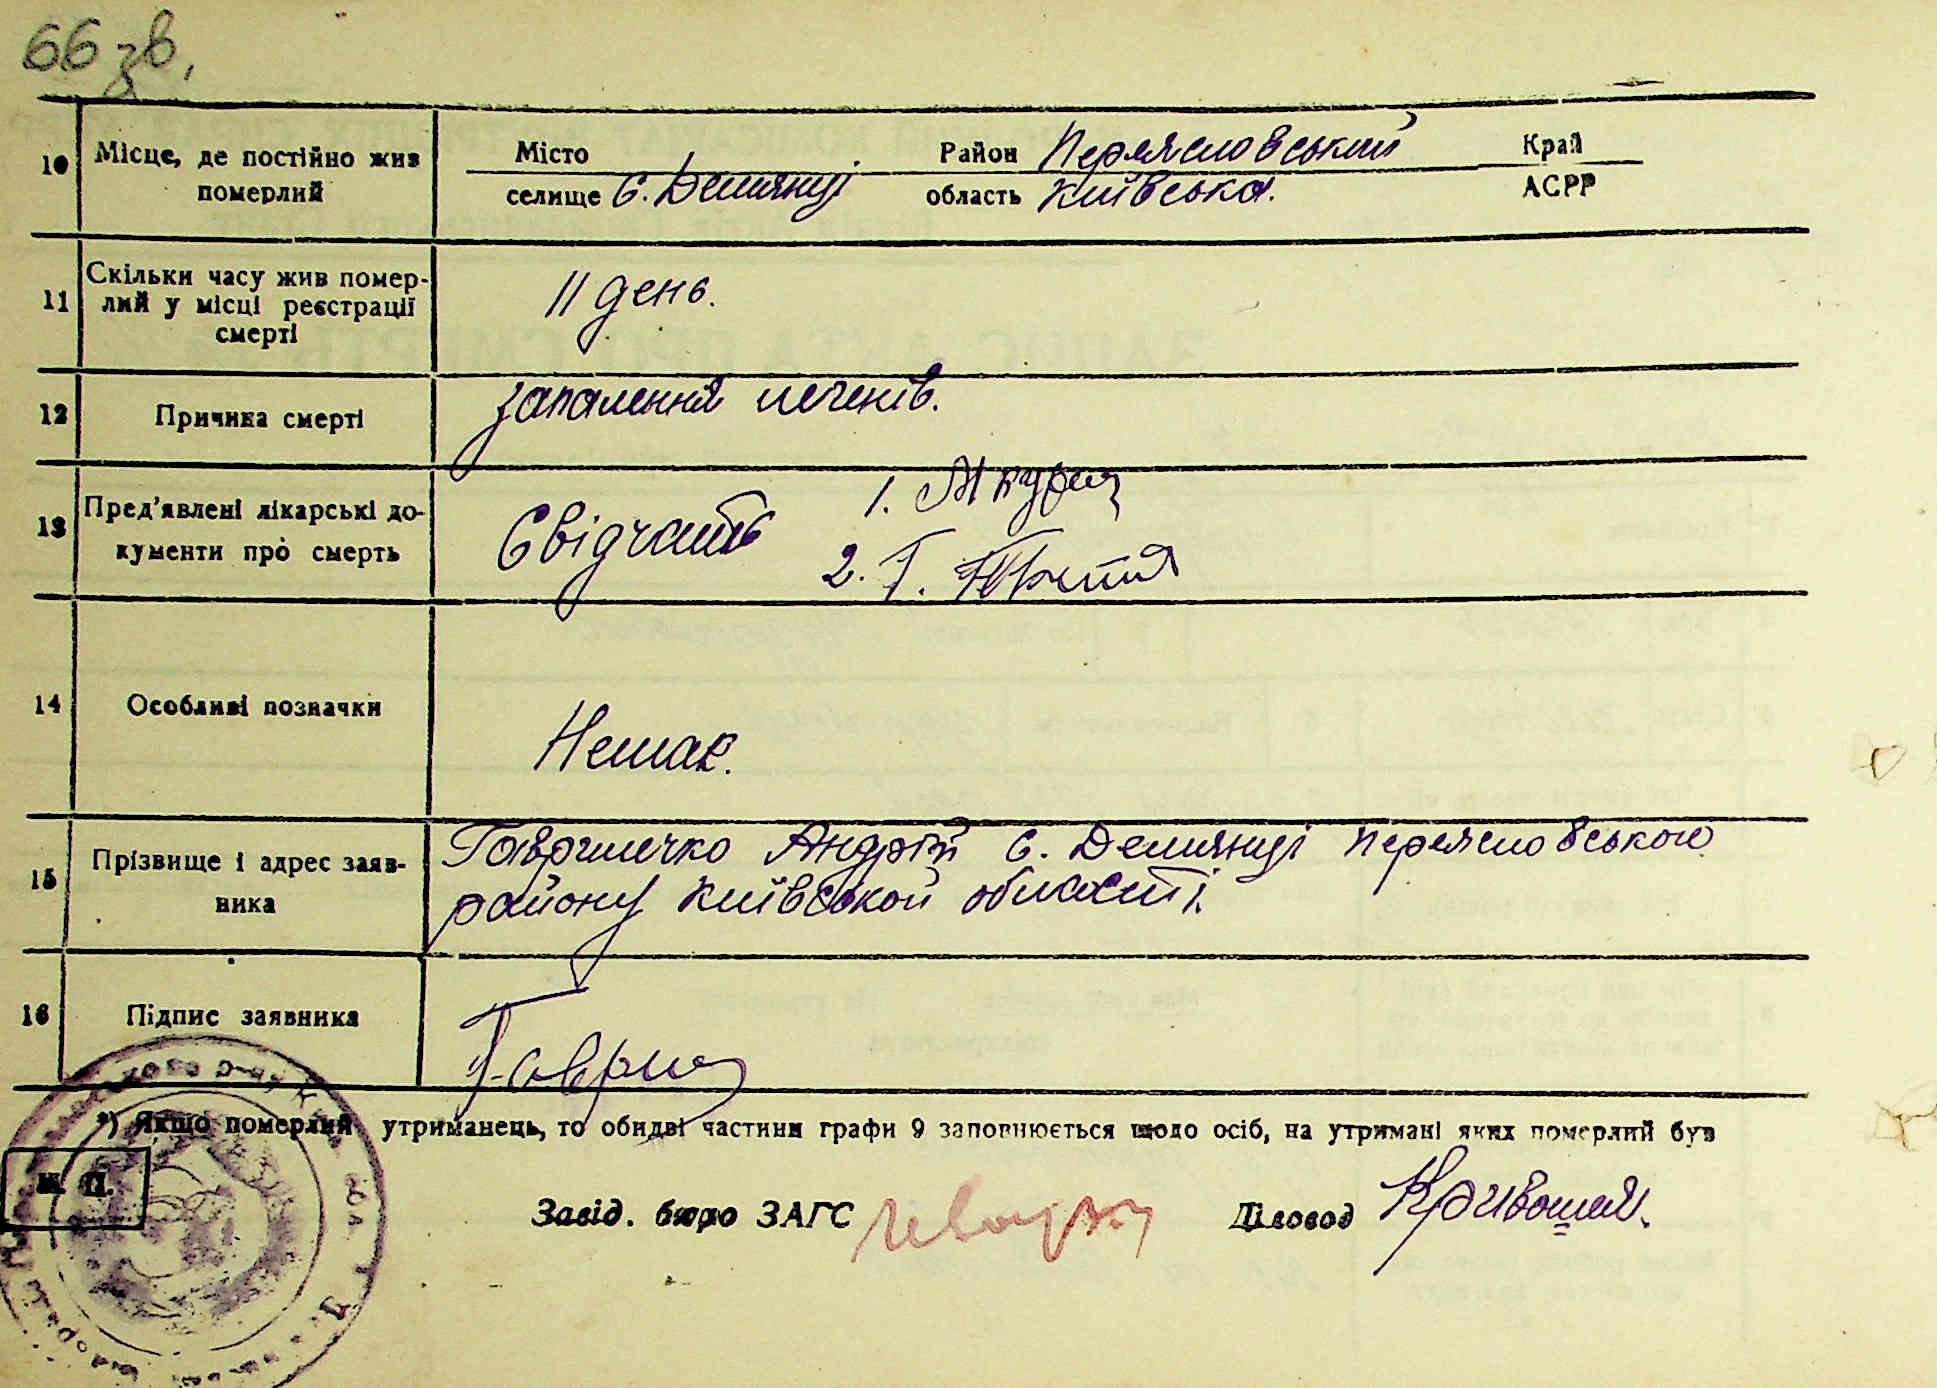 66 зв.
10 Місце, де постійно жив померлий
Місто Район Переяславський Край
селище с. Демянці область Київська. АСРР
11 Скільки часу жив помер-
лий у місці реєстрації
смерті
11 день.
12 Причина смерті запалення печенів.
13 Пред'явлені лікарські до-
кументи про смерть
Свідчать 1.
2. Г.
14 Особливі позначки
Немає.
15 Прізвище і адрес заяв-
ника
Гаврилечко Андрій с. Демянці Переясловського
району Київської області.
16 Підпис заявника
*) Якщо померлий утриманець, то обидві частини графи 9 заповнюється щодо осіб, на утримані яких померлий був
М. П.
Завід. бюро ЗАГС Діловод Кривошия.